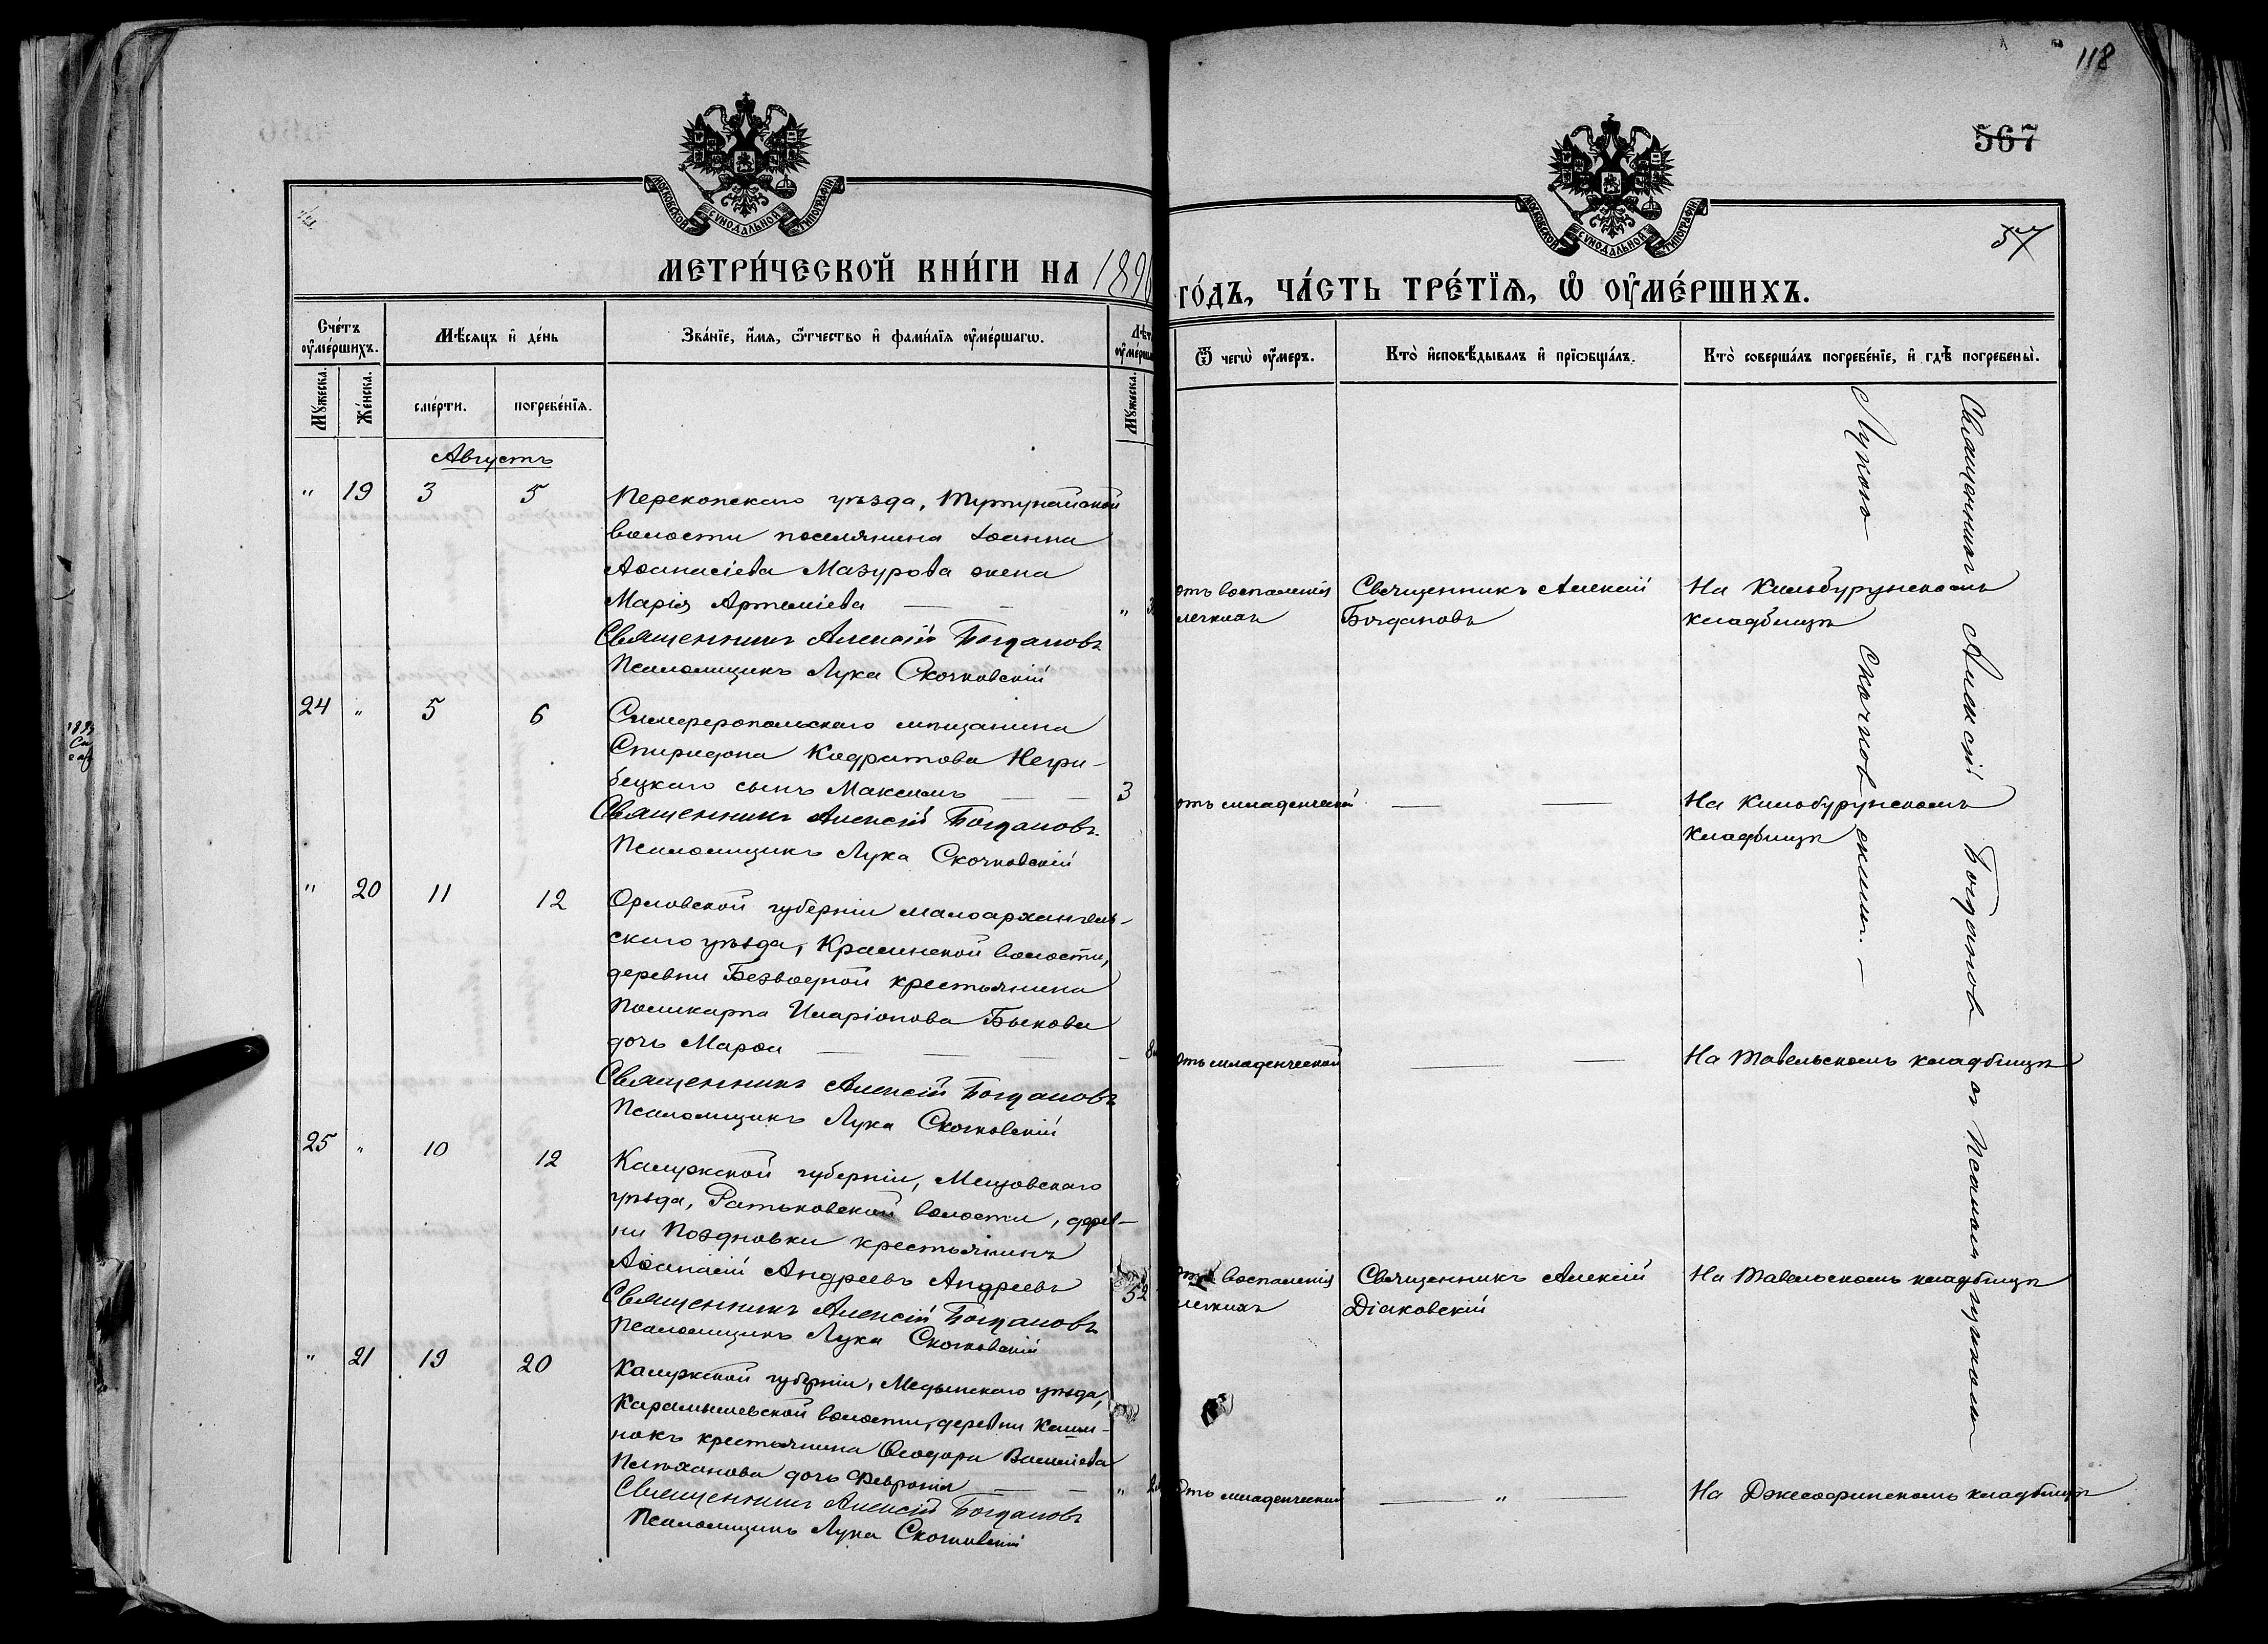 118
567
57
МОСКОВСКОЙ СѴНОДАЛЬНОЙ ТИПОГРАФІИ
МОСКОВСКОЙ СѴНОДАЛЬНОЙ ТИПОГРАФІИ
МЕТРИ́ЧЕСКОЙ КНИ́ГИ НА 189
ГО́ДЪ, ЧА́СТЬ ТРЕ́ТЇѦ, Ѡ҆ ОУ҆МЕ́РШИХЪ.
Сче́тъ оу҆ме́ршихъ.
Мꙋ́жеска.
Же́нска.
Мѣ́сяцъ и҆ де́нь
сме́рти.
погребе́нїѧ.
Зва́нїе, и҆́мѧ, ѻ҆́тчество и҆ фами́лїѧ оу҆ме́ршагѡ.
Лѣт
оу҆мерш
Мꙋ́жеска.
Ѿ чегѡ̀ оу҆́меръ.
Кто̀ и҆сповѣ́дывалъ и҆ прїѡбща́лъ.
Кто̀ соверша́лъ погребе́нїе, и҆ гдѣ̀ погребены̀.
Августъ
" 19 3 5 Перекопскаго уѣзда, Тутунайской
волости поселянина Іоанна
Аѳанасіева Мазурова жена
Марія Артеміева — — "
Священникъ Алексій Богдановъ
Псаломщикъ Лука Скочковскій
отъ воспаленія
легкихъ
Священникъ Алексій
Богдановъ
На Кильбурунскомъ
кладбищѣ
24 " 5 6 Симферопольскаго мѣщанина
Спиридона Кодратова Негри-
бецкаго сынъ Максимъ — — 3
Священникъ Алексій Богдановъ.
Псаломщикъ Лука Скочковскій
отъ младенческой — —
На Кильбурунскомъ
кладбищѣ
" 20 11 12 Орловской губерніи малоархангель-
скаго уѣзда, Красинской волости,
деревни Безводной крестьянина
Поликарпа Иларіонова Быкова
дочь Марѳа — — — —
Священникъ Алексій Богдановъ
Псаломщикъ Лука Скочковскій
отъ младенческой — —
На Тавельскомъ кладбищѣ
25 " 10 12 Калужской губерніи, Мещовскаго
уѣзда, Ратьковской волости, дерев-
ни Поздновки крестьянинъ
Аѳанасій Андреевъ Андреевъ 52
Священникъ Алексій Богдановъ
Псаломщикъ Лука Скочковскій
отъ воспаленія
легкихъ
Священникъ Алексій
Діаковскій
На Тавельскомъ кладбищѣ
" 21 19 20 Калужской губерніи, Медынскаго уѣзда,
Карамышевской волости, деревни
нокъ крестьянина Ѳеодора Василіева
Пелѣханова дочь Февронія — — "
Священникъ Алексій Богдановъ
Псаломщикъ Лука Скочковскій
Отъ младенческой — " —
На Джесофинскомъ кладбищѣ
Священникъ Алексій Богдановъ съ Псаломщикомъ
Лукою Скочковскимъ. —